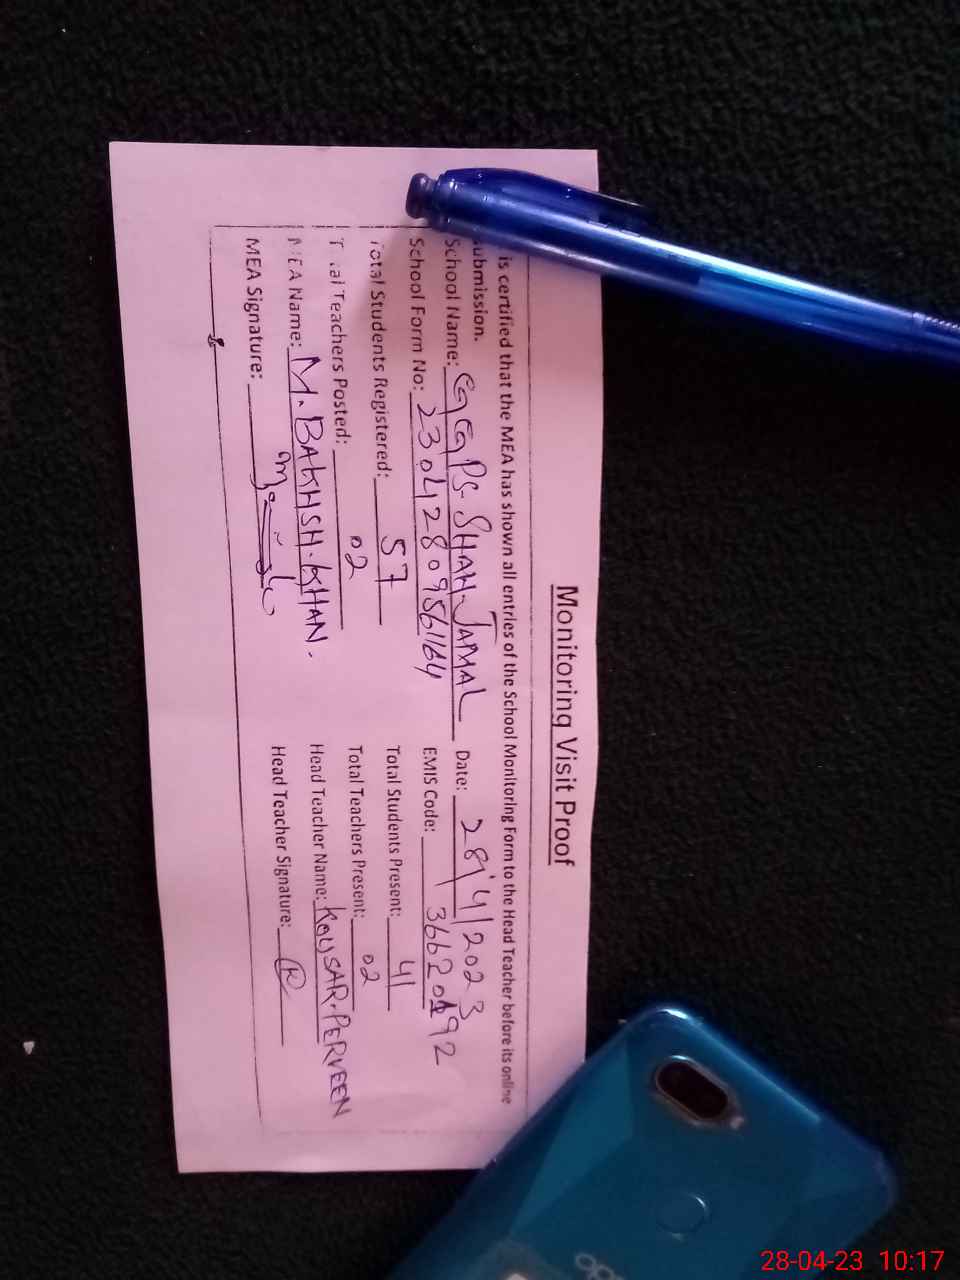 Monitoring Visit Proof
is certified that the MEA has shown all entries of the School Monitoring Form to the Head Teacher before its online
submission.
School Name: GGPS. SHAH JAMAL Date: 28/4/2023
School Form No: 23042809561164 EMIS Code:
Total Students Registered: 57 Total Students Present: 41
Total Teachers Posted: 02 Total Teachers Present: 02
MEA Name: M. BAKHSH. KHAN. Head Teacher Name: KOUSAR. PERVEEN
MEA Signature: Head Teacher Signature:
oppo
28-04-23 10:17